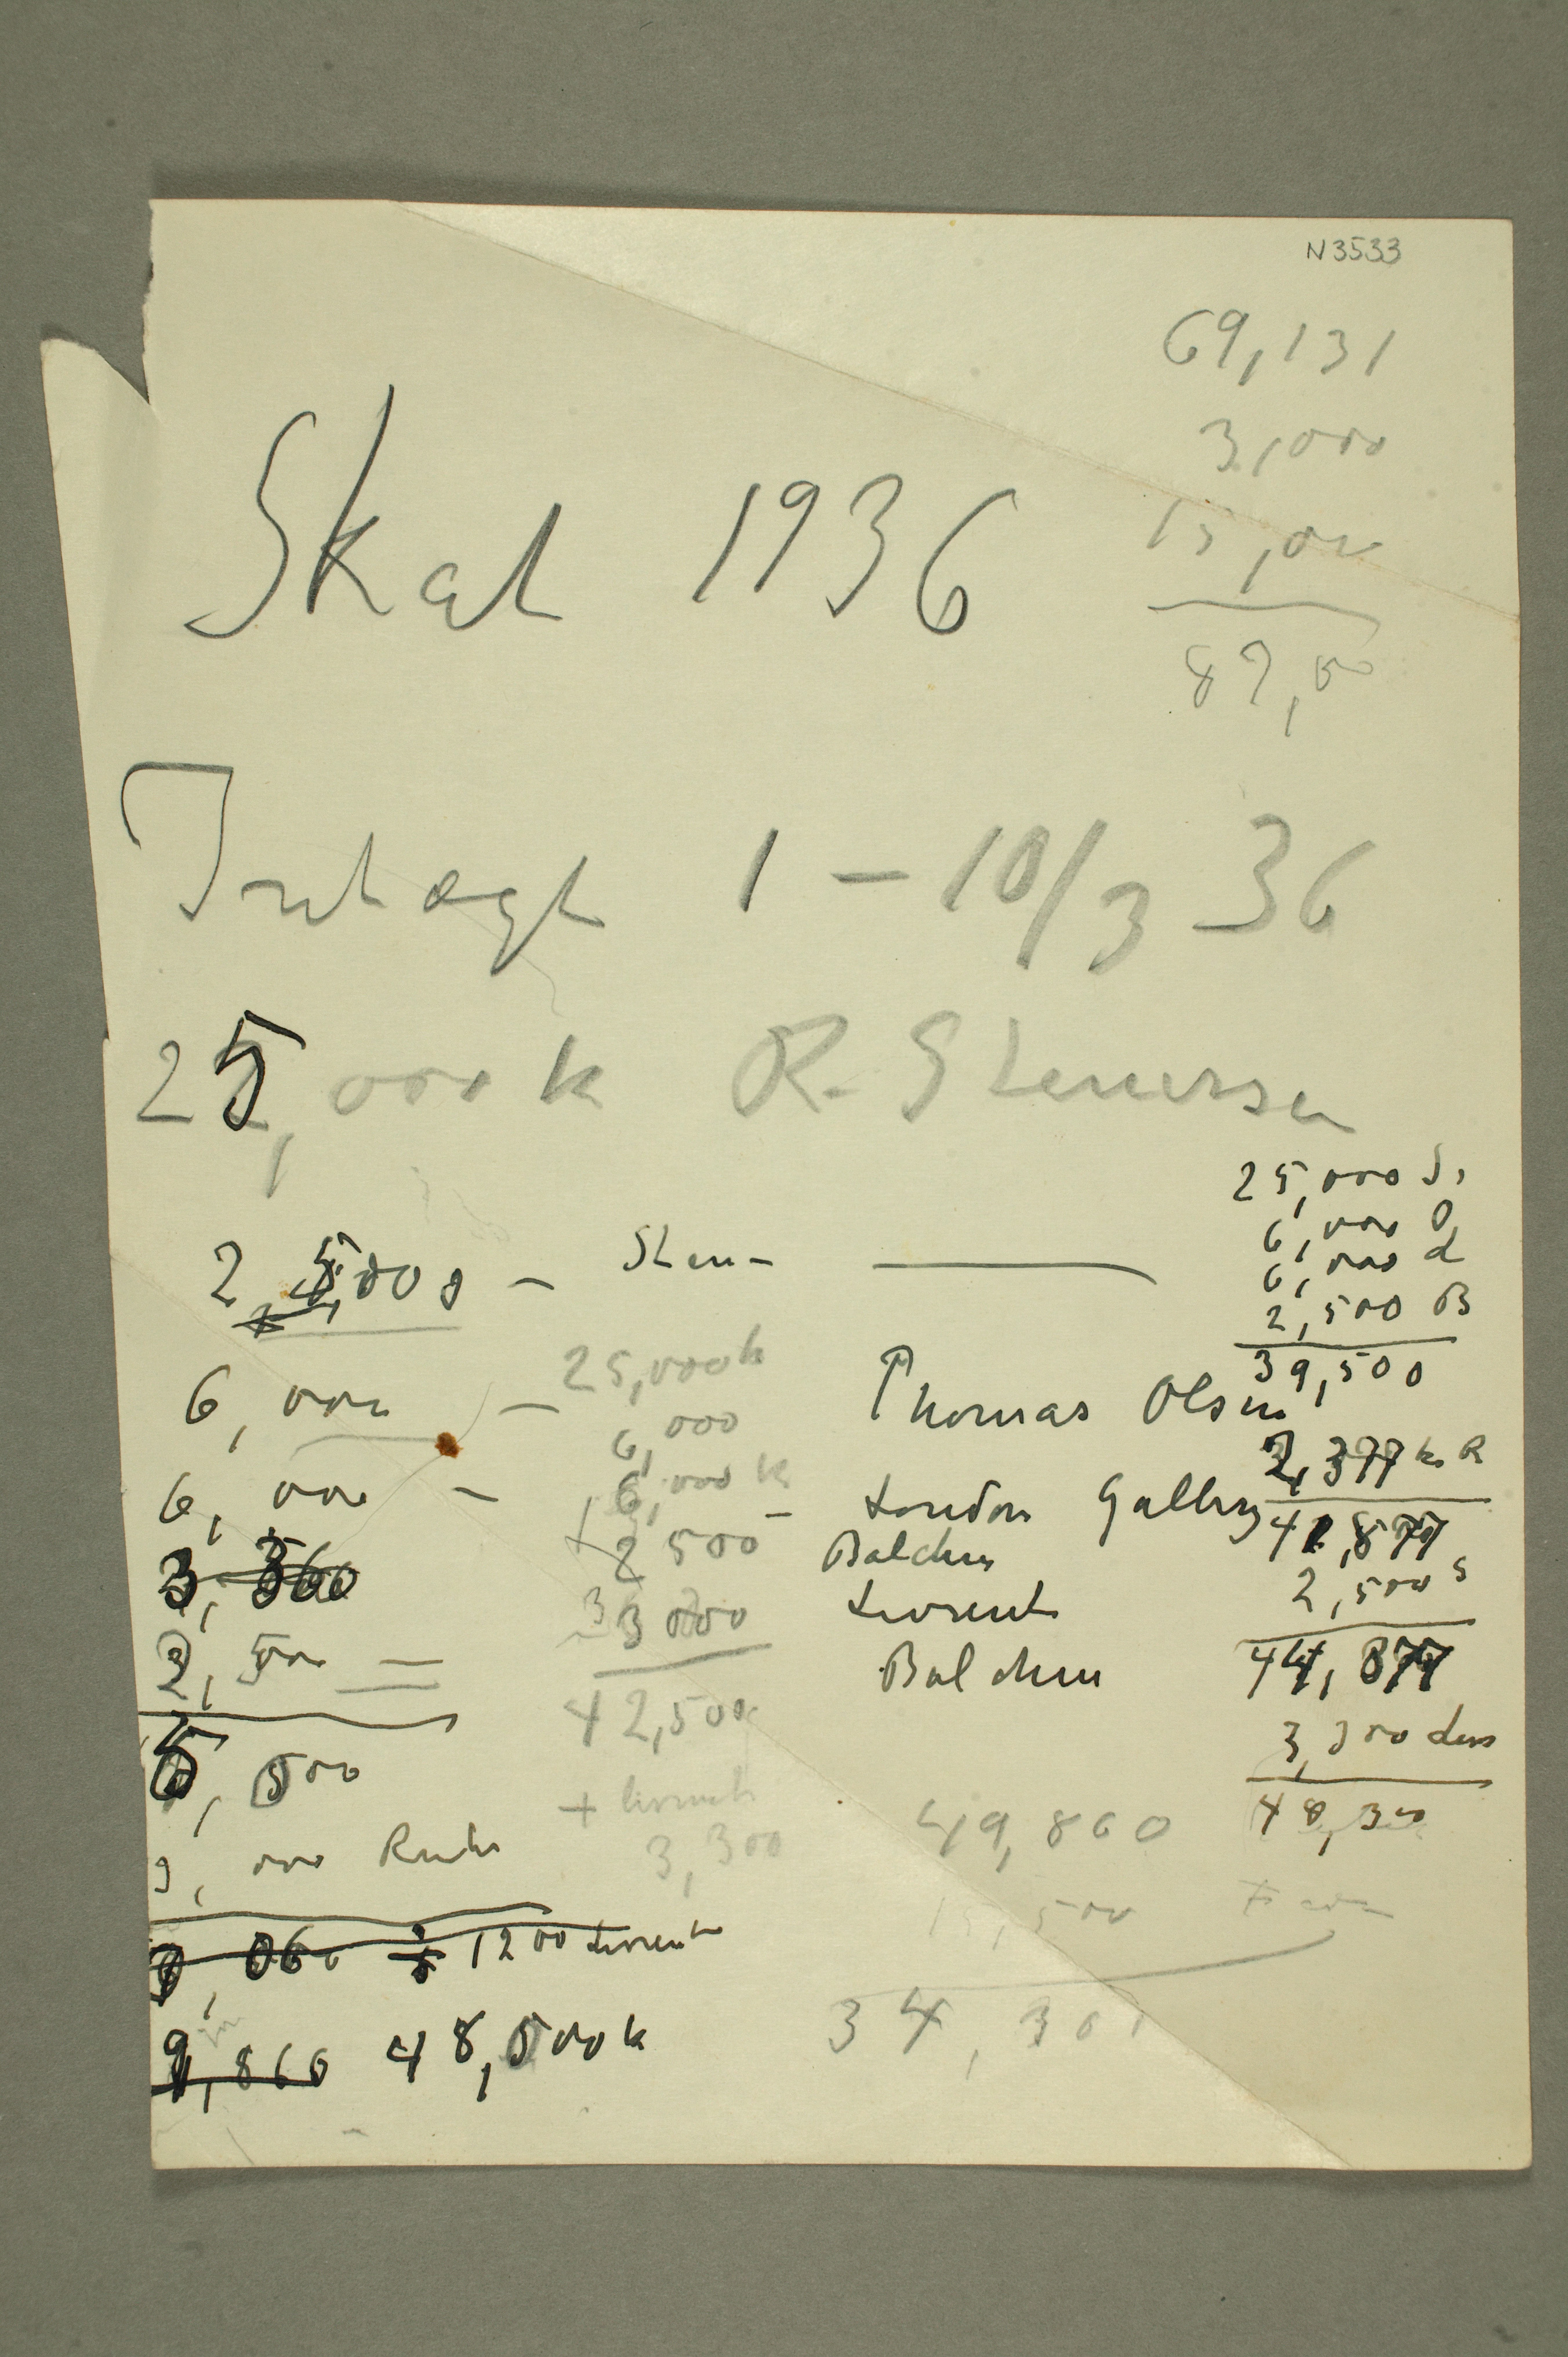 N3533
69,131
3,000
15,000
87,000
Skat 1936
Intægt 1 – 10/3 36
25,000 k R. Stenersen
2,5000 – Sten –
6,000 – Thomas Olsen
6,000 – – London Gallery
3,360 Balchen
2,500 = Livrent
Balchen
5,500
3,000 Rente
060 1200 Livrente
9,860 48,500 k
25,000 k
6,000
6,000 k
2 500
3 000
42,500
+ livrent
3,300
25,000 S.
6,000 O
6,000 L
2,500 B
39,500
2,377 k R
41,877
2,500 S
44,877
3,300 Liv
48,300
49,860
15,500
34,301